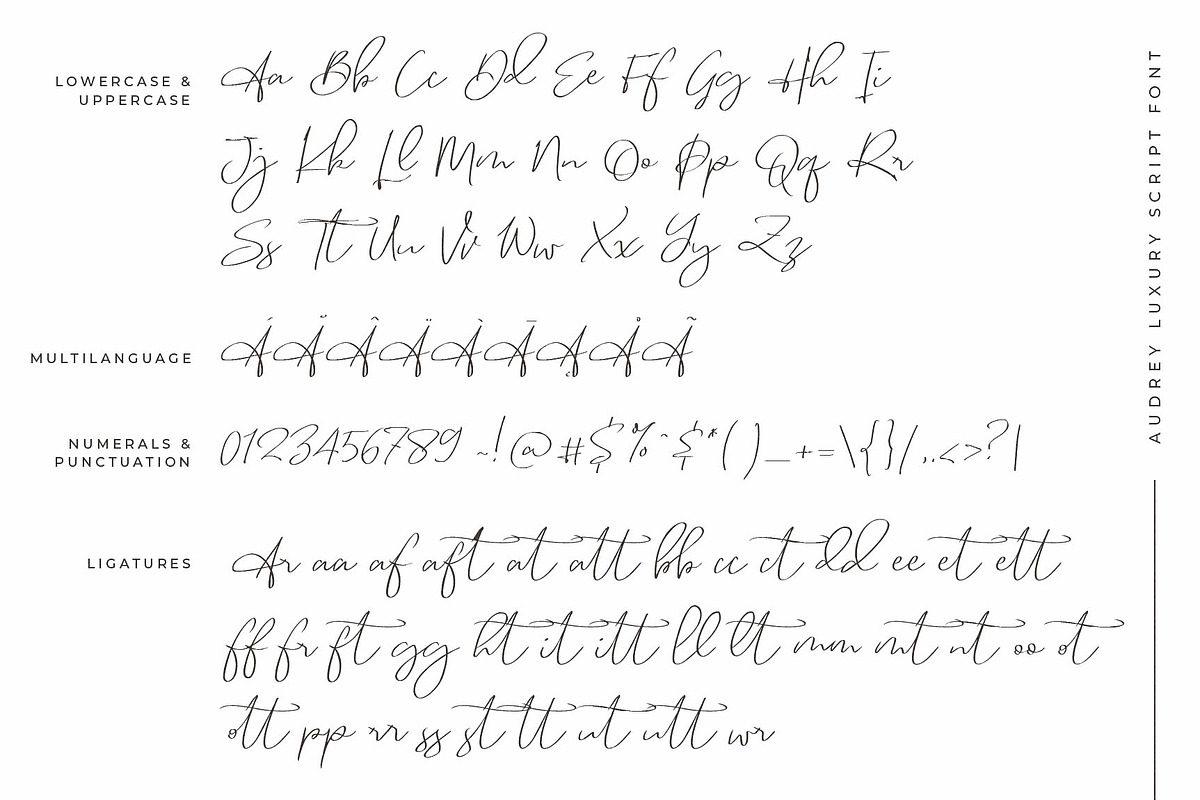 LOWERCASE &
UPPERCASE
Aa Bb Cc Dd Ee Ff Gg Hh Ii
Jj Kk Ll Mm Nn Oo Pp Qq Rr
Ss Tt Uu Vv Ww Xx Yy Zz
MULTILANGUAGE
Á Ă Â Ä À Ā Ą Å Ã
NUMERALS &
PUNCTUATION
0123456789 ~!@#$%^$*()_+=\{}/,.<>?|
LIGATURES
Ar aa af aft at att bb cc ct dd ee et ett
ff fr ft gg ht it itt ll lt mm mt nt oo ot
ott pp rr ss st tt ut utt wr
AUDREY LUXURY SCRIPT FONT